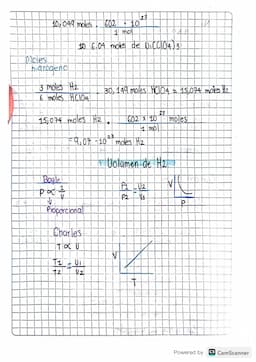 10,049 moles . 602 * 10²³
1 mol
moles de U(ClO4)3
Moles
hidrogeno
3 moles H2 . 30,149 moles HClO4 = 15,074 moles H2
6 moles HClO4
15,074 moles H2 . 602 x 10²³ moles
1 mol
= 9,07 · 10²³ moles H2
Volumen de H2
Boyle
P ∝ 1/V
Proporcional
P1 = V2
P2 V1
V
P
Charles
T ∝ V
T1 = V1
T2 V2
V
T
Powered by CamScanner